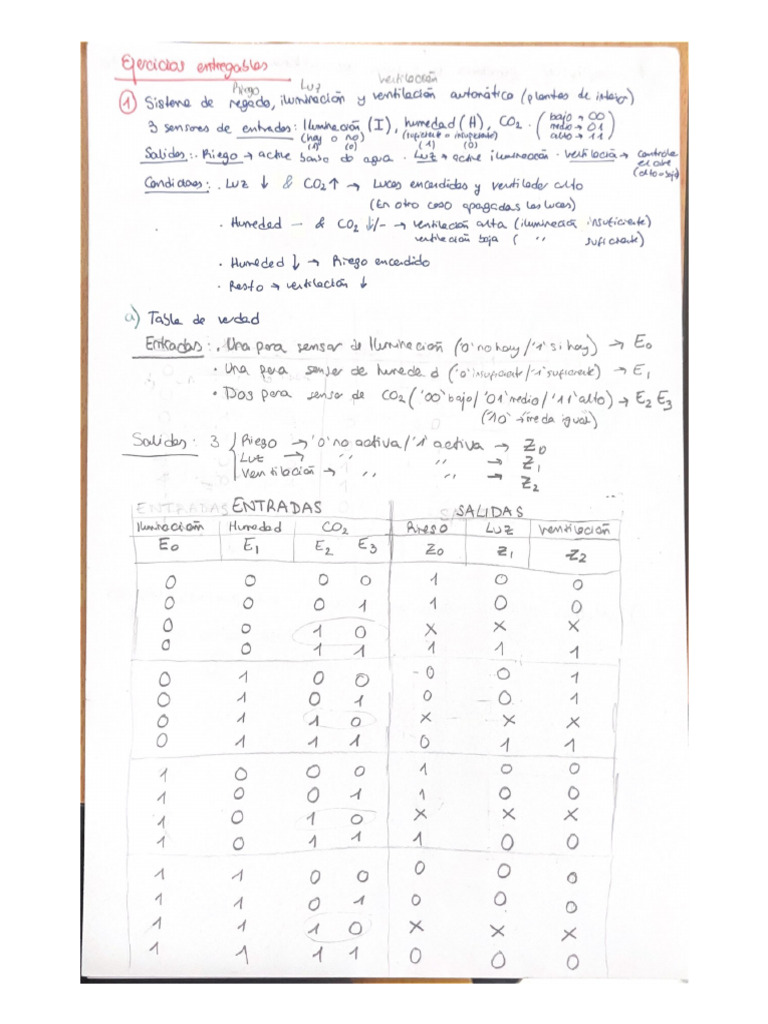 Ejercicios entregables
Riego Luz ventilación
1 Sistema de regado, iluminación y ventilación automático (plantas de interior)
3 sensores de entradas: Iluminación (I), humedad (H), CO2. (bajo → 00
(hay o no) (suficiente o insuficiente) medio → 01
(1) (0) (1) (0) alto → 11)
Salidas: Riego → active bomba de agua. Luz → active iluminación. ventilación → controla
el aire
(alto-bajo)
Condiciones: . Luz ↓ & CO2 ↑ → Luces encendidas y ventilador alto
(En otro caso apagadas las luces)
. Humedad — & CO2 ↓/- → ventilación alta (iluminación insuficiente)
ventilación baja ( '' suficiente)
. Humedad ↓ → Riego encendido
. Resto → ventilación ↓
a) Tabla de verdad
Entradas: . Una para sensor de Iluminación ('0' no hay / '1' si hay) → E0
• Una para sensor de humedad ('0' insuficiente / '1' suficiente) → E1
• Dos para sensor de CO2 ('00' bajo / '01' medio / '11' alto) → E2 E3
('10' → me da igual)
Salidas: 3 { Riego → '0' no activa / '1' activa → Z0
Luz → '' '' → Z1
Ventilación → '' '' → Z2
ENTRADAS ENTRADAS SALIDAS
Iluminación Humedad CO2 Riego Luz Ventilación
E0 E1 E2 E3 Z0 Z1 Z2
0 0 0 0 1 0 0
0 0 0 1 1 0 0
0 0 1 0 x x x
0 0 1 1 1 1 1
0 1 0 0 0 0 1
0 1 0 1 0 0 1
0 1 1 0 x x x
0 1 1 1 0 1 1
1 0 0 0 1 0 0
1 0 0 1 1 0 0
1 0 1 0 x x x
1 0 1 1 1 0 0
1 1 0 0 0 0 0
1 1 0 1 0 0 0
1 1 1 0 x x x
1 1 1 1 0 0 0